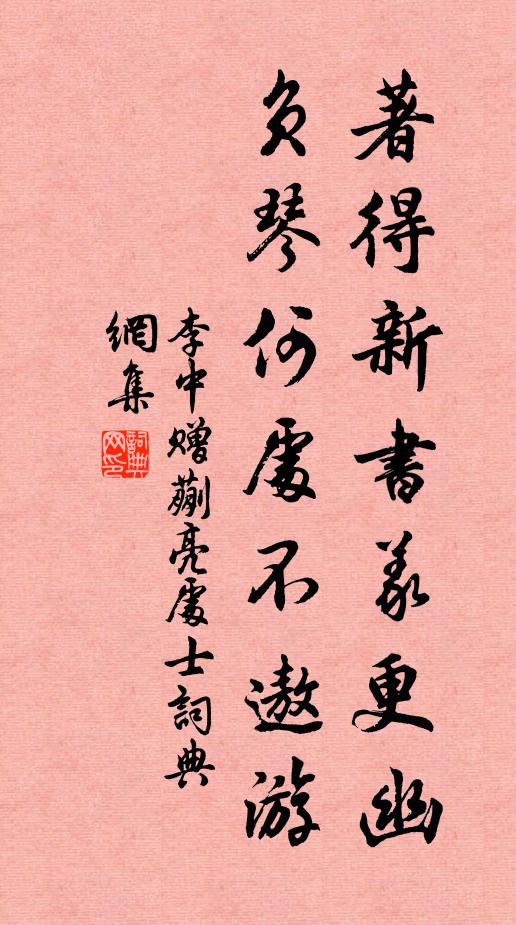 著得新書義更幽
負琴何處不遨游
李中贈蒯亮處士詞典
網集
詞典
网印